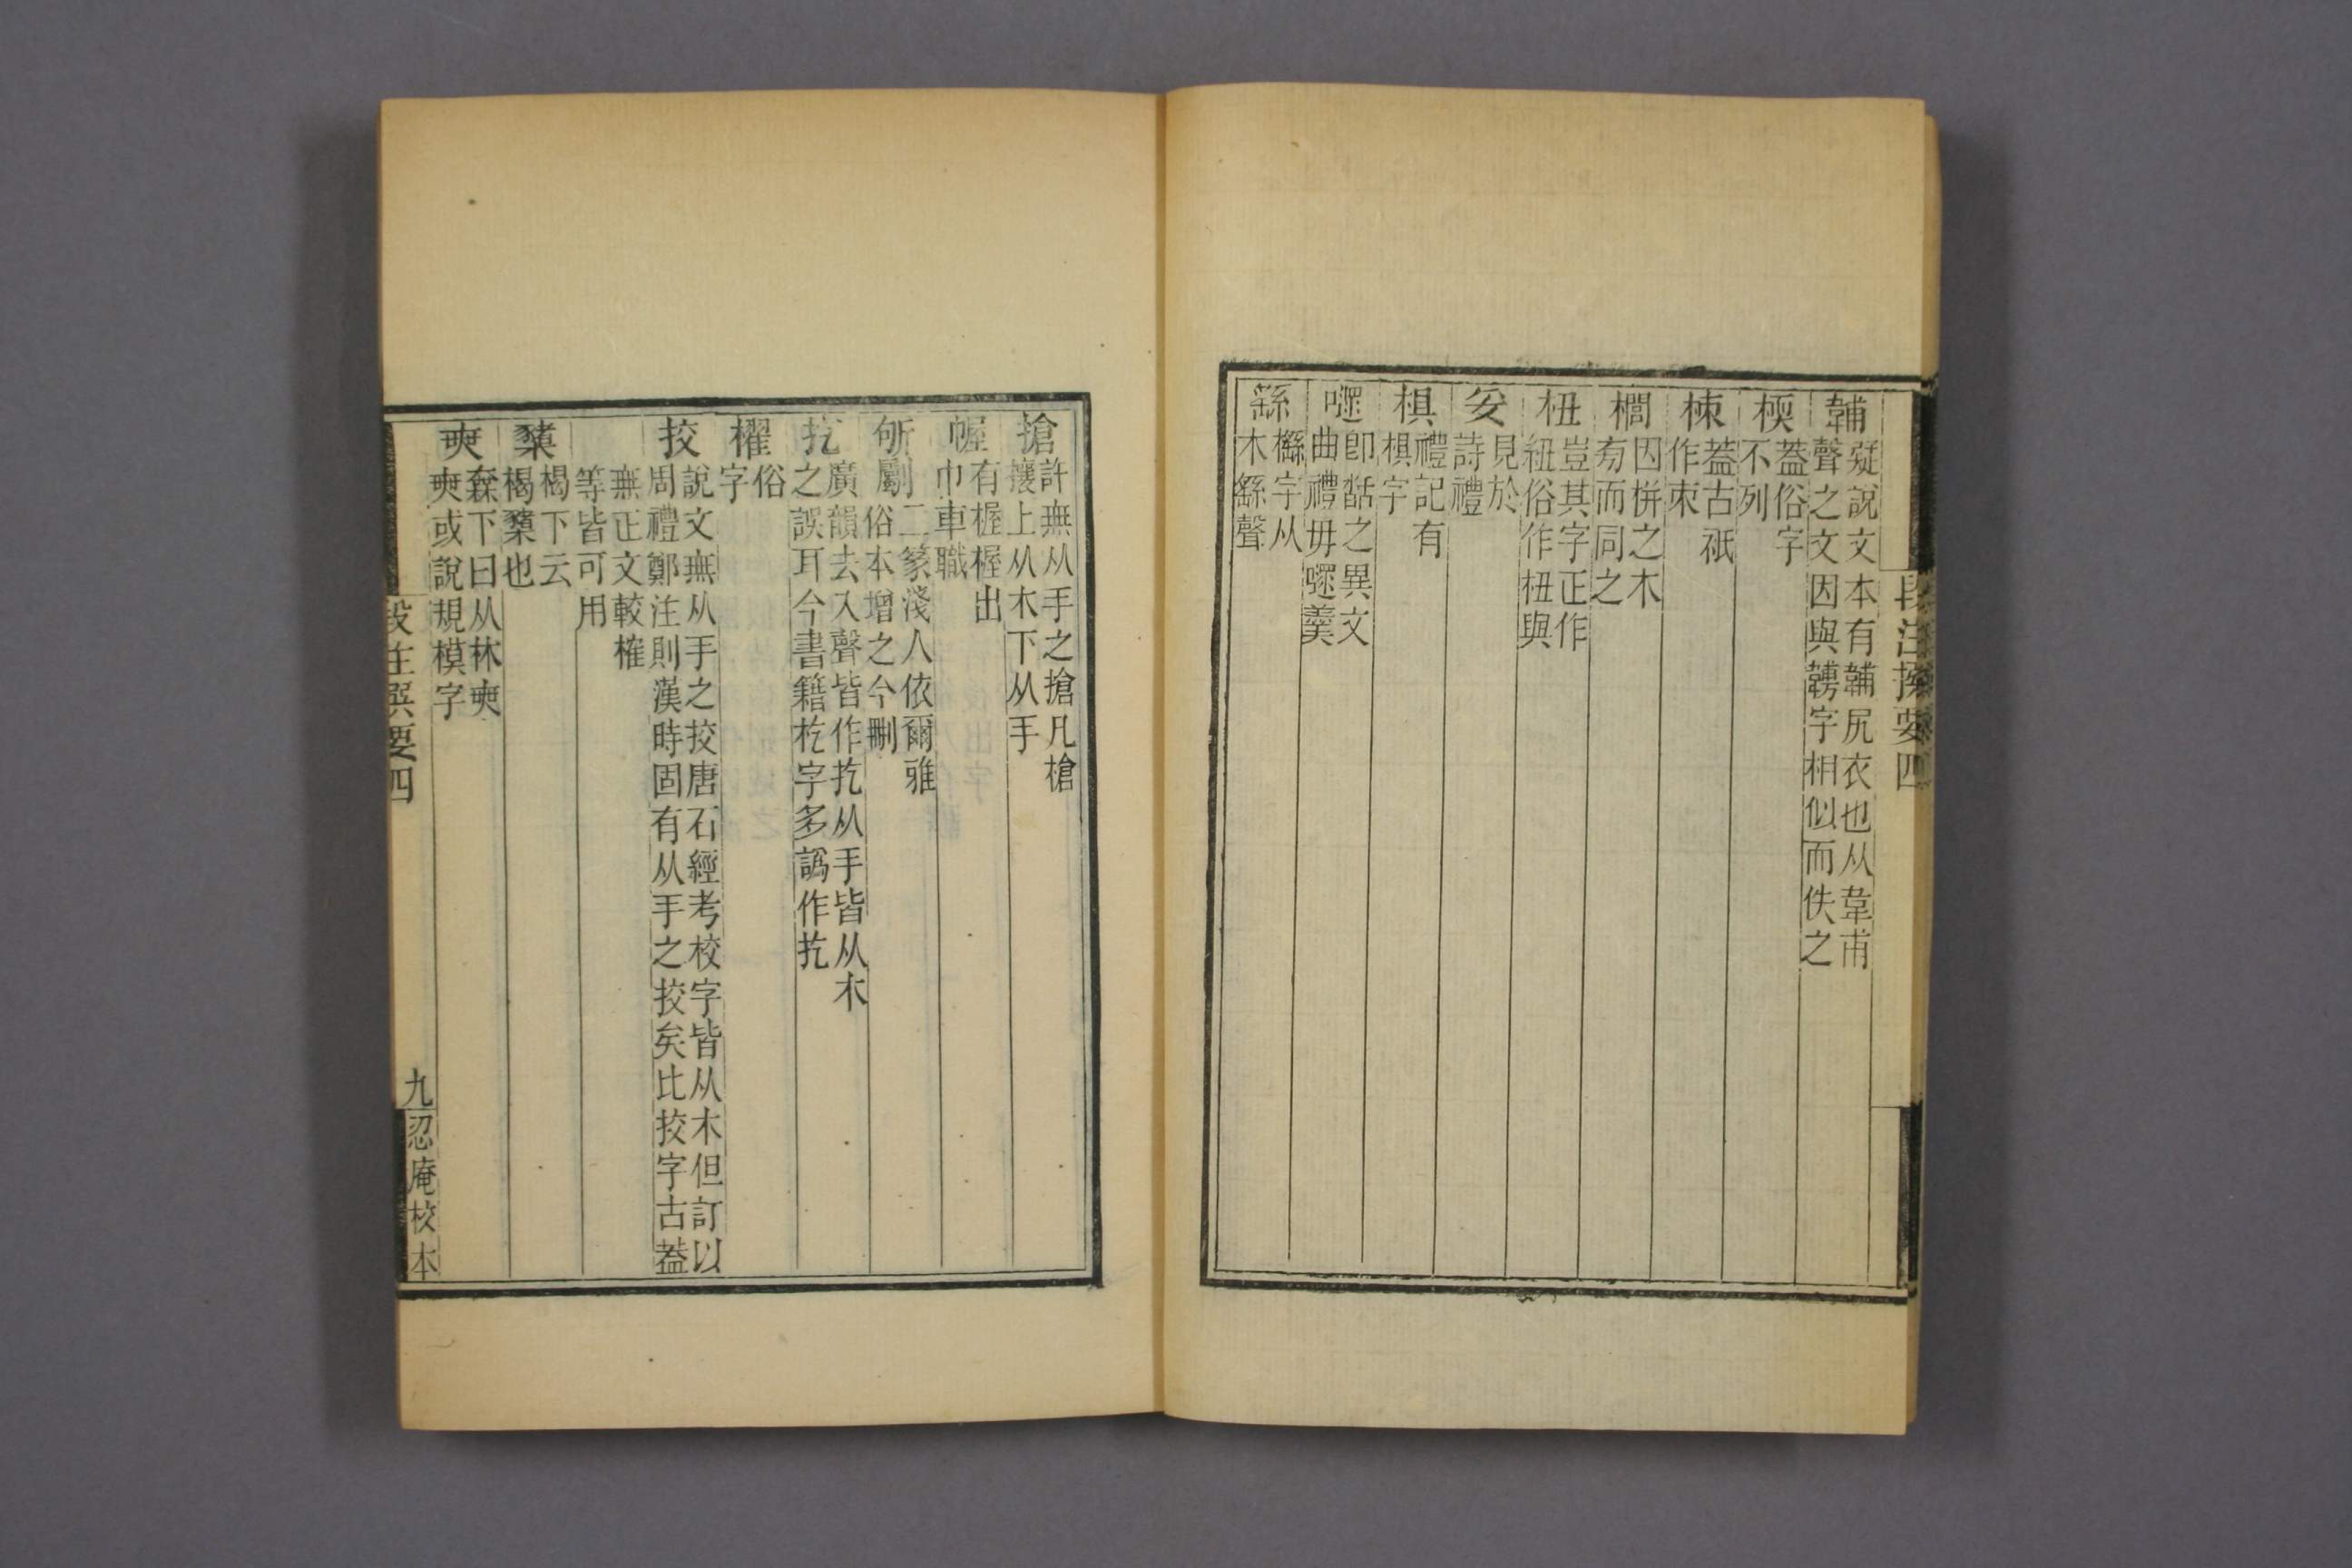 段注撰要四
䩉
疑說文本有䩉尻衣也从韋甫
聲之文因與䩷字相似而佚之
楆
蓋俗字
不列
棟
蓋古祇
作朿
櫚
因栟之木
旁而同之
杻
豈其字正作
紐俗作杻與
妛
見於
詩禮
椇
禮記有
椇字
嚃
卽䑜之異文
曲禮毋嚃羹
繇
櫾字从
木繇聲
搶
許無从手之搶凡槍
攘上从木下从手
幄
有楃楃出
巾車職
斪
斸二篆淺人依爾雅
俗本增之今刪
扢
廣韻去入聲皆作扢从手皆从木
之誤耳今書籍杚字多譌作扢
櫂
俗
字
挍
說文無从手之挍唐石經考校字皆从木但訂以
周禮鄭注則漢時固有从手之挍矣比挍字古蓋
無正文較榷
等皆可用
櫫
楬下云
楬櫫也
奭
森下曰从林奭
奭或說規模字
段注撰要四
九
忍庵校本